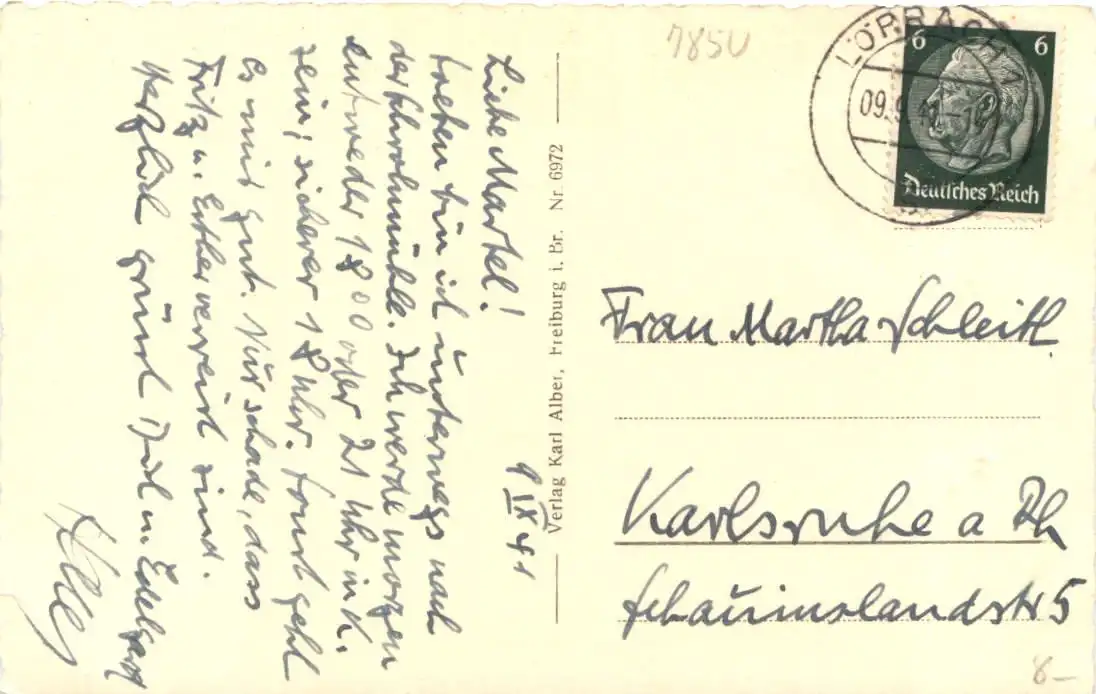 Liebe Martel!
9 IX 41
treten bin ich unterwegs nach
der Fuhrwohnmühle. Ich werde morgen
entweder 1800 oder 21 Uhr in K.
sein, sicherer 18 Uhr. Sonst geht
es mir gut. Nur schade, dass
Fritz u. Esther verreist sind.
Herzlich grüsst Dich u. Edelgard
Verlag Karl Alber, Freiburg i. Br. Nr. 6972
785U
LÖRRACH 1
09.9.41
6 6
Deutsches Reich
Frau Martha Schleitl
Karlsruhe a Rh
Schauinslandstr 5
8-